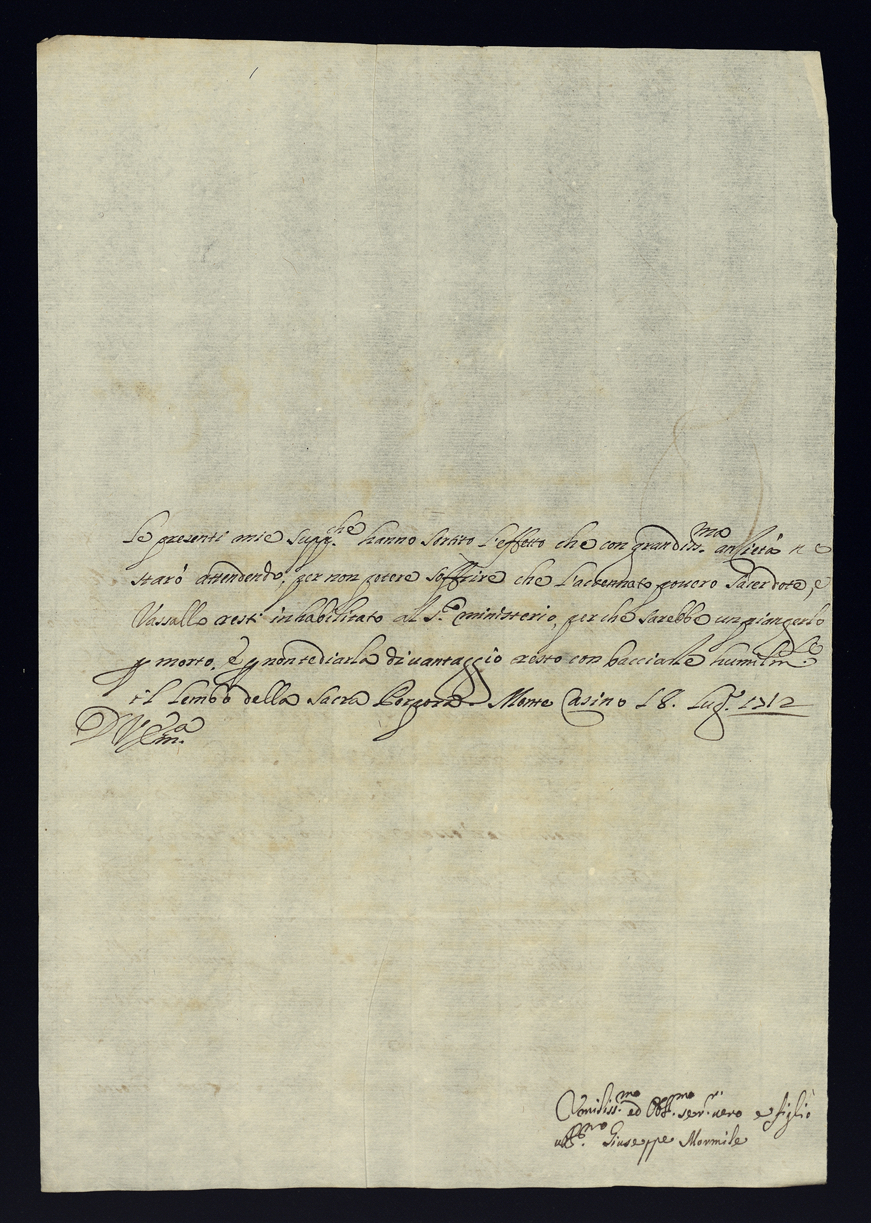 Le presenti mie supp.che hanno sortito l'effetto che con grandiss.ma ansietà ne
starò attendendo, per non potere soffrire che l'accennato povero sacerdote, e
Vassallo resti inhabilitato al s.o ministerio, perche sarebbe un piangerlo
p morto. E p non tediarla di vantaggio resto con bacciarle humilm.e
il lembo della sacra Porpora. Monte Casino 18. Lug.o 1712
D V Em.a
Vmiliss.mo ed Obb.mo ser.r vero e figlio
Giuseppe Mormile